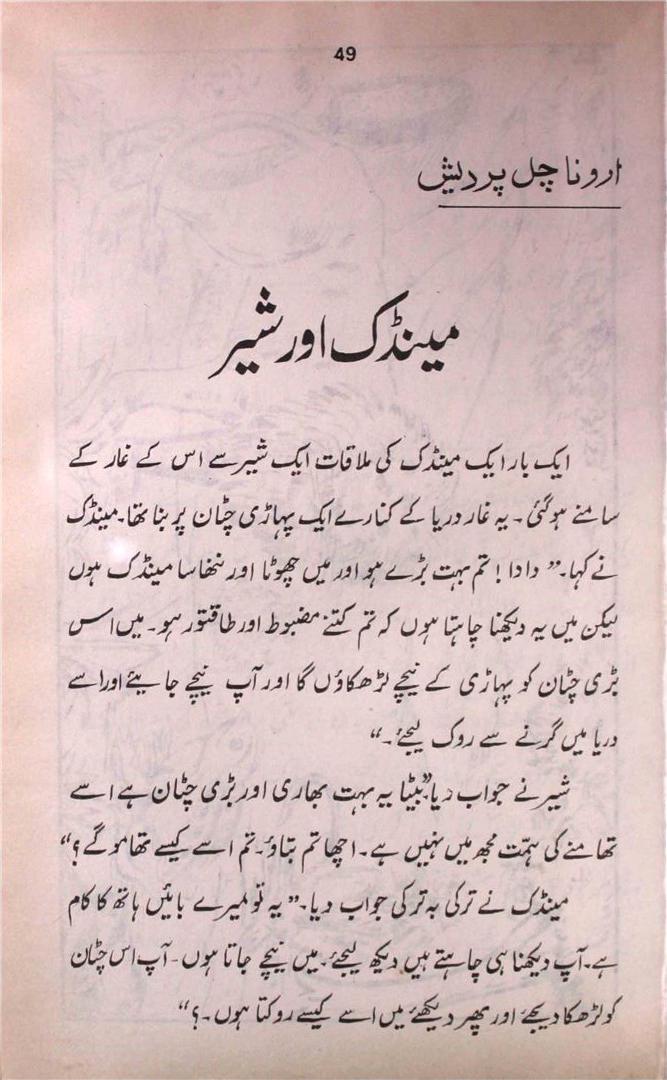 49
ارونا چل پردیش
مینڈک اور شیر
ایک بار ایک مینڈک کی ملاقات ایک شیر سے اس کے غار کے
سامنے ہوگئی۔ یہ غار دریا کے کنارے ایک پہاڑی چٹان پر بنا تھا۔ مینڈک
نے کہا۔” دادا! تم بہت بڑے ہو اور میں چھوٹا اور ننھا سا مینڈک ہوں
لیکن میں یہ دیکھنا چاہتا ہوں کہ تم کتنے مضبوط اور طاقتور ہو۔ میں اس
بڑی چٹان کو پہاڑی کے نیچے لڑھکاؤں گا اور آپ نیچے جایئے اور اسے
دریا میں گرنے سے روک لیجئے۔“
شیر نے جواب دیا”بیٹا یہ بہت بھاری اور بڑی چٹان ہے اسے
تھامنے کی ہمّت مجھ میں نہیں ہے۔ اچھا تم بتاؤ۔ تم اسے کیسے تھاموگے؟“
مینڈک نے ترکی بہ ترکی جواب دیا۔” یہ تو میرے بائیں ہاتھ کا کام
ہے۔ آپ دیکھنا ہی چاہتے ہیں دیکھ لیجئے۔ میں نیچے جاتا ہوں۔ آپ اس چٹان
کو لڑھکا دیجئے اور پھر دیکھئے میں اسے کیسے روکتا ہوں۔؟“